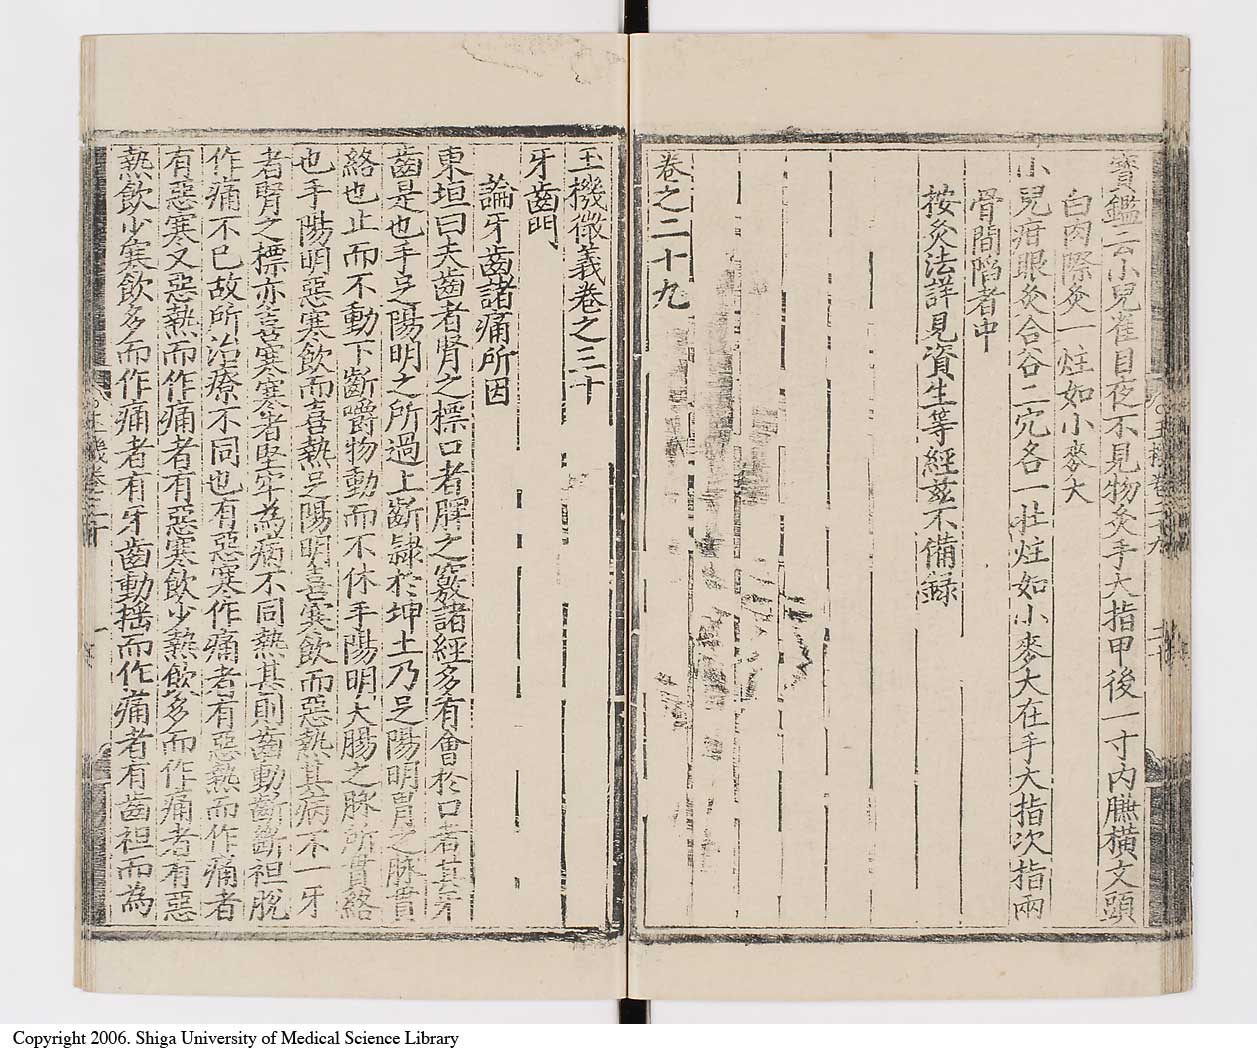 寳鑑云小兒雀目夜不見物灸手大指甲後一寸內臁橫文頭
白肉際灸一炷如小麥大
小兒疳眼灸合谷二穴各一壯炷如小麥大在手大指次指兩
骨間陷者中
按灸法詳見資生等經茲不備錄
卷之二十九
玉機微義卷之三十
牙齒門
論牙齒諸痛所因
東垣曰夫齒者腎之標口者脾之竅諸經多有會於口者其牙
齒是也手足陽明之所過上齗隷於坤土乃足陽明胃之脉貫
絡也止而不動下齗嚼物動而不休手陽明大腸之脉所貫絡
也手陽明惡寒飲而喜熱足陽明喜寒飲而惡熱其病不一牙
者腎之標亦喜寒寒者堅牢為病不同熱甚則齒動齗斷袒脫
作痛不已故所治療不同也有惡寒作痛者有惡熱而作痛者
有惡寒又惡熱而作痛者有惡寒飲少熱飲多而作痛者有惡
熱飲少寒飲多而作痛者有牙齒動搖而作痛者有齒袒而為
Copyright 2006. Shiga University of Medical Science Library